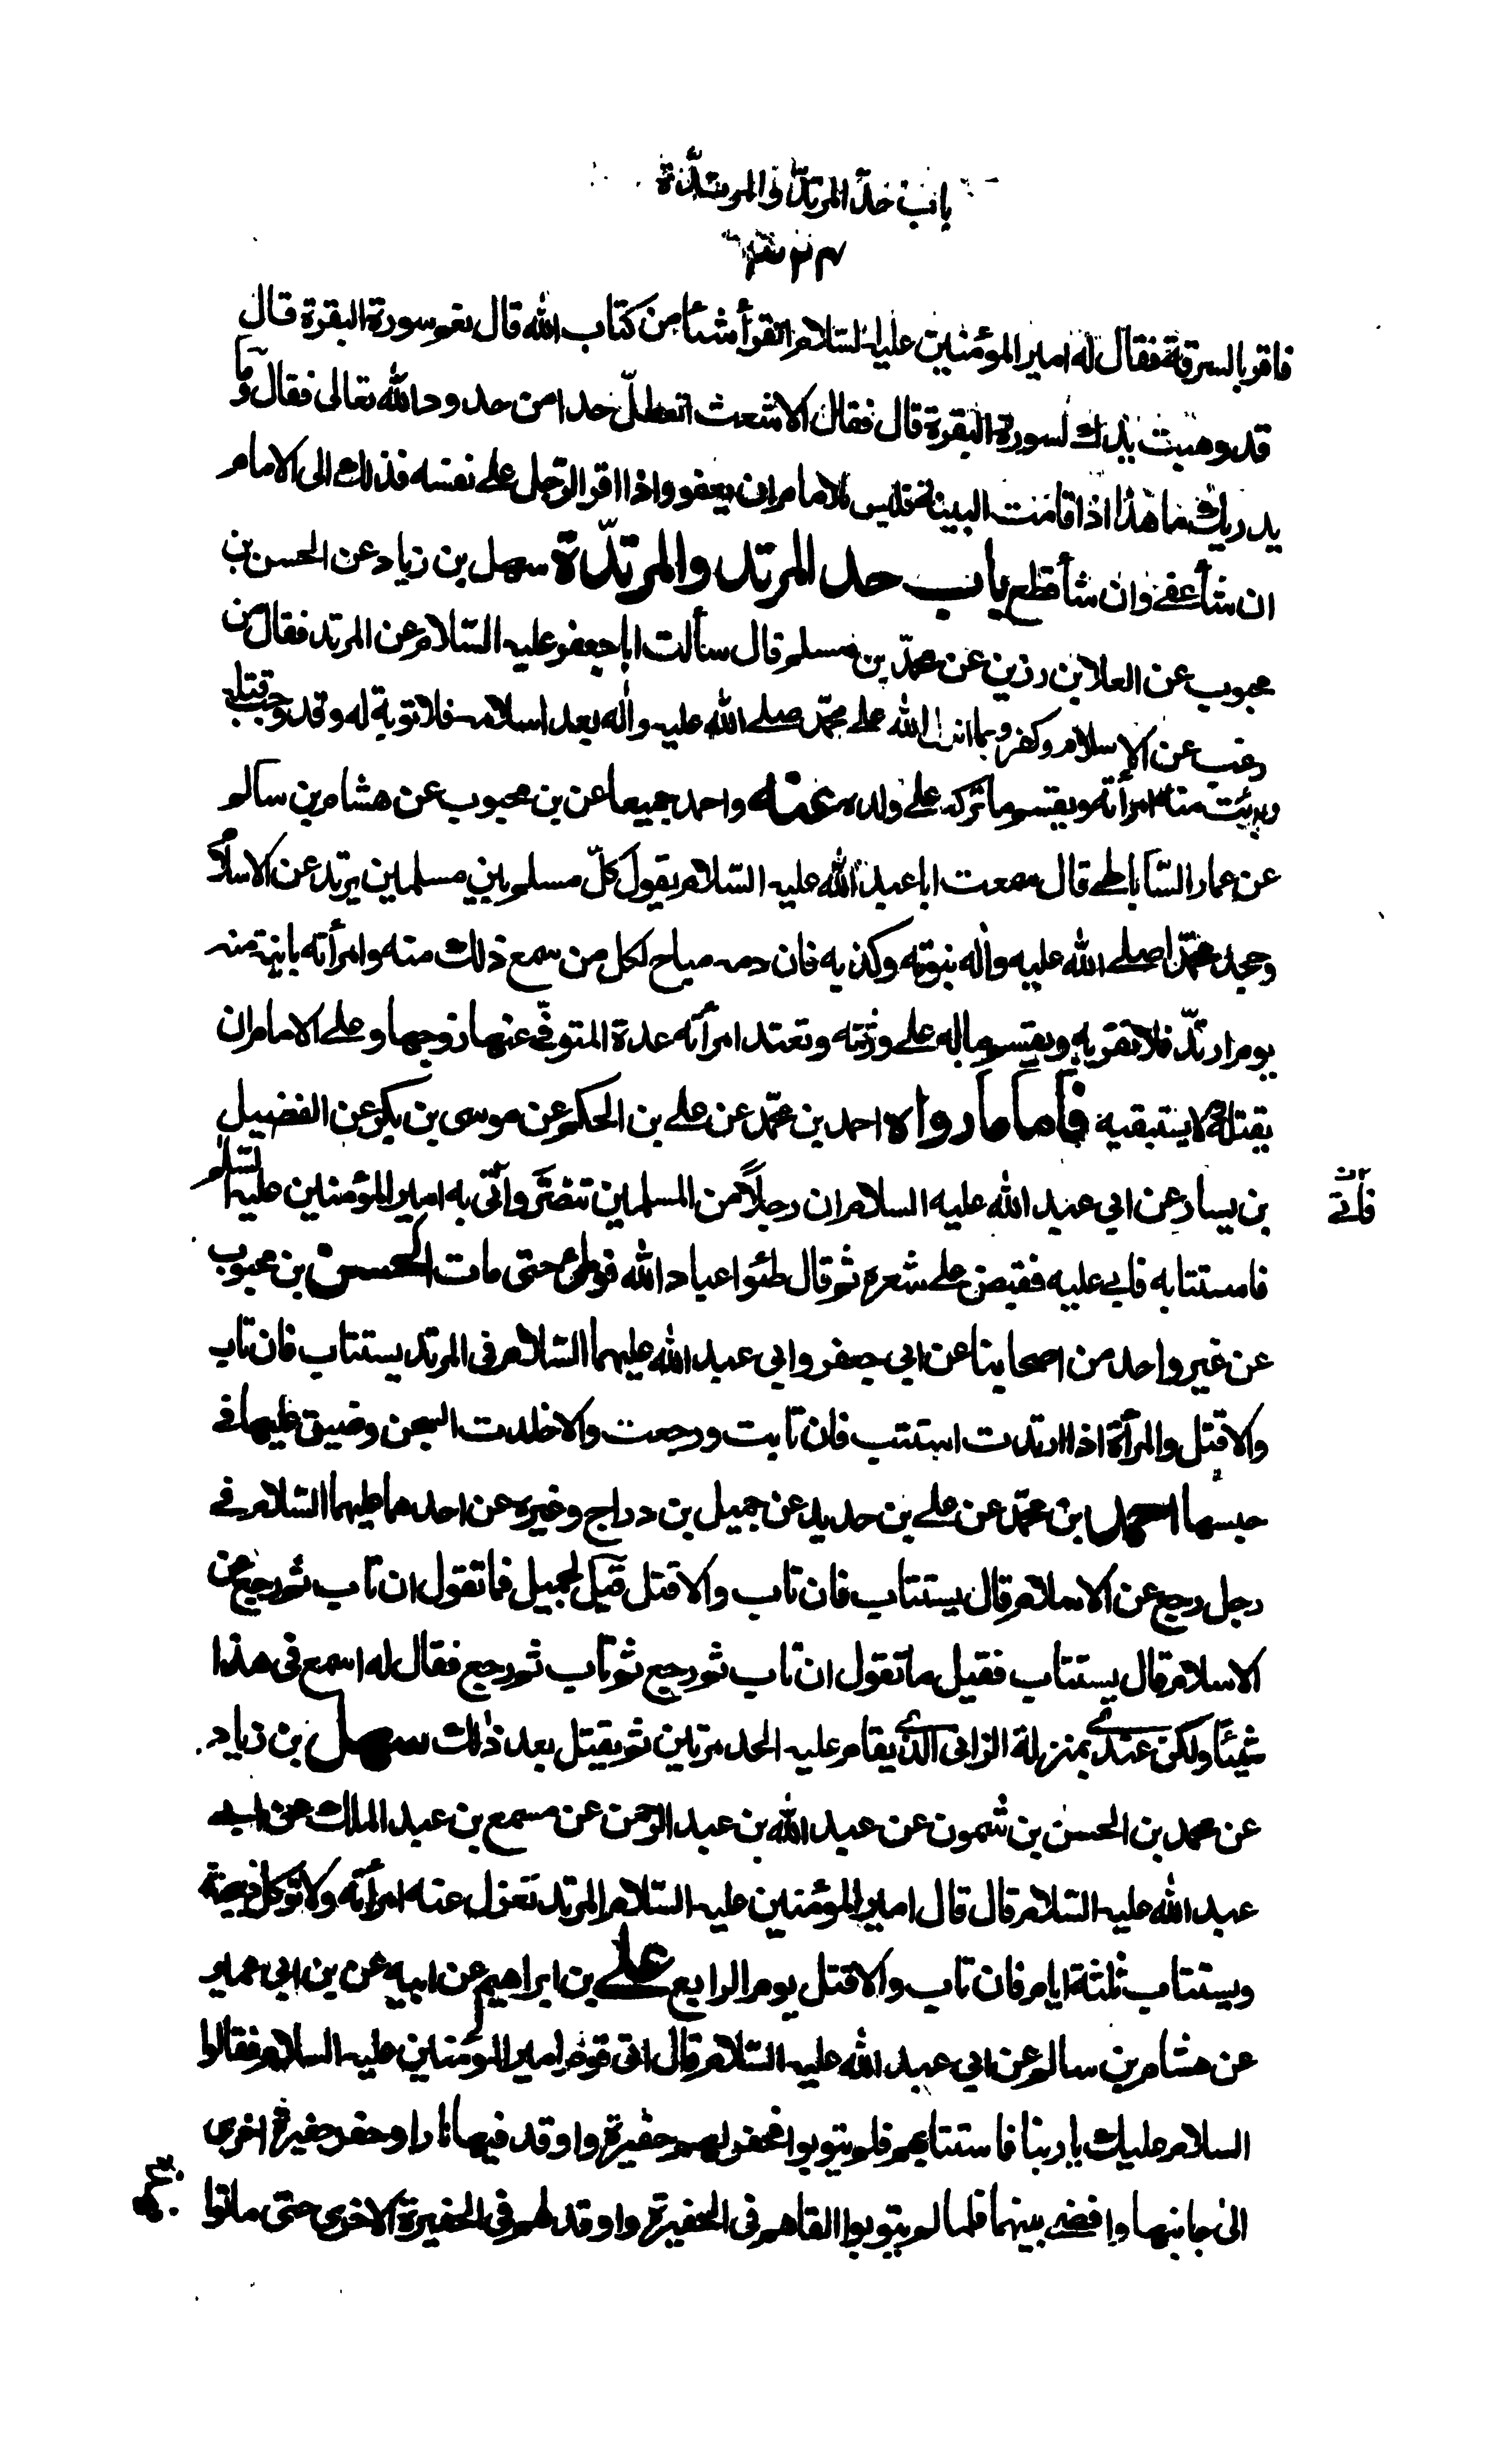 باب حدّ المرتدّ والمرتدّة
فاقر بالسرقة فقال له امير المؤمنين عليه السّلام اتقرأ شيئا من كتاب الله قال نعم سورة البقرة قال
قد وهبت يدك لسورة البقرة قال فقال الاشعث اتعطلّ حدا من حدود الله تعالى فقال وما
يدريك ما هذا اذا قامت البينة فليس للامام ان يعفو واذا اقر الرّجل على نفسه فذلك الى الامام
ان شأ عفى وان شأ قطع باب حد المرتد والمرتدّة سهل بن زياد عن الحسن بن
محبوب عن العلا بن رزين عن محمّد بن مسلم قال سألت ابا جعفر عليه السّلام عن المرتد فقال من
رغب عن الاسلام وكفر بما انزل الله على محمّد صلى الله عليه واله بعد اسلامه فلا توبة له وقد وجب قتله
وبرئت منه امرأته ويقسم ما تركه على ولده عنه واحمد جميعا عن بن محبوب عن هشام بن سالم
عن عمار السّاباطى قال سمعت ابا عبد الله عليه السّلام يقول كلّ مسلم بين مسلمين يرتد عن الاسلام
وجحد محمّدا صلى الله عليه واله نبوته وكذبه فان دمه مباح لكل من سمع ذلك منه وامرأته باينة منه
يوم ارتدّ فلا تقربه ويقسم ماله على ورثته وتعتد امرأته عدة المتوفّى عنها زوجها وعلى الامام ان
يقتله ولا يستبقيه فأما ما رواه احمد بن محمّد عن على بن الحكم عن موسى بن بكر عن الفضيل
بن يسار عن ابي عبد الله عليه السلام ان رجلاً من المسلمين تنصّر واتى به امير المؤمنين عليه السّلم
فاتى
فاستتابه فابى عليه فقبض على شعره ثم قال طئوا عباد الله فوطئ حتى مات الحسن بن محبوب
عن غير واحد من اصحابنا عن ابي جعفر وابي عبد الله عليهما السّلام فى المرتد يستتاب فان تاب
والا قتل والمرأة اذا ارتدت استتب فان تابت ورجعت والا خلدت السجن وضيق عليها فى
حبسها احمد بن محمّد عن على بن حديد عن جميل بن دراج وغيره عن احدهما عليهما السّلام فى
رجل رجع عن الاسلام قال يستتاب فان تاب والا قتل قيل لجميل فما تقول ان تاب ثم رجع عن
الاسلام قال يستتاب فقيل ما تقول ان تاب ثم رجع ثم تاب ثم رجع فقال له اسمع فى هذا
شيئا ولكن عندى بمنزلة الزانى الذى يقام عليه الحد مرتين ثم يقتل بعد ذلك سهل بن زياد
عن محمد بن الحسن بن شمون عن عبد الله بن عبد الرحمن عن مسمع بن عبد الملك عن ابى
عبد الله عليه السّلام قال قال امير المؤمنين عليه السّلام المرتد تعزل عنه امرأته ولا توكل ذبيحته
ويستتاب ثلثة ايام فان تاب والا قتل يوم الرابع على بن ابراهيم عن ابيه عن بن ابي عمير
عن هشام بن سالم عن ابي عبد الله عليه السّلام قال اتى قوم امير المؤمنين عليه السلام فقالوا
السلام عليك يا ربنا فاستتابهم فلم يتوبوا فحفر لهم حفيرة واوقد فيها نارا وحفر حفيرة اخرى
الى جانبها وافضى بينهما فلما لم يتوبوا القاهم فى الحفيرة واوقد لهم فى الحفيرة الاخرى حتى ماتوا